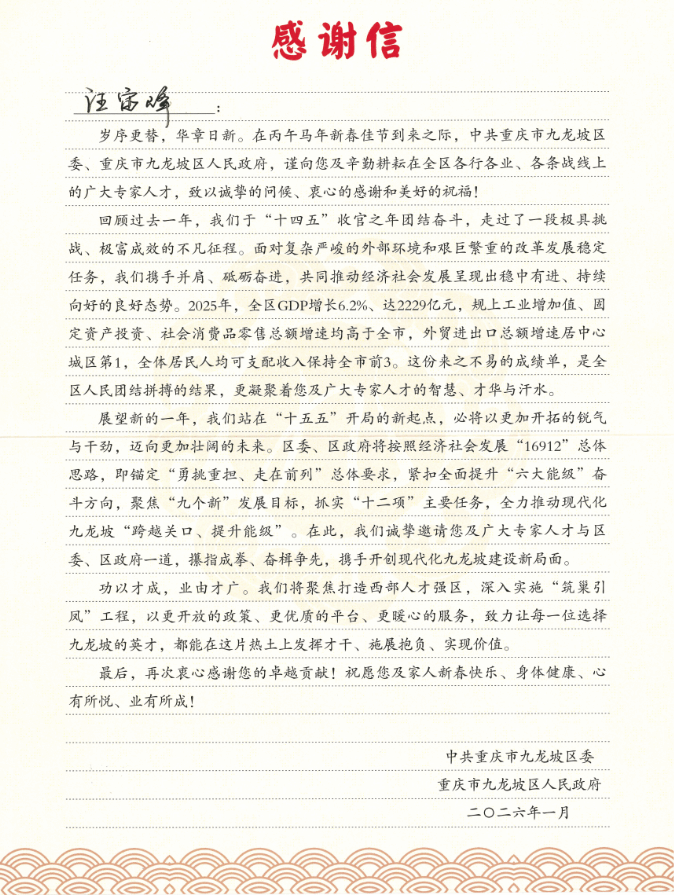 感谢信
汪宗峰：
岁序更替，华章日新。在丙午马年新春佳节到来之际，中共重庆市九龙坡区
委、重庆市九龙坡区人民政府，谨向您及辛勤耕耘在全区各行各业、各条战线上
的广大专家人才，致以诚挚的问候、衷心的感谢和美好的祝福！
回顾过去一年，我们于“十四五”收官之年团结奋斗，走过了一段极具挑
战、极富成效的不凡征程。面对复杂严峻的外部环境和艰巨繁重的改革发展稳定
任务，我们携手并肩、砥砺奋进，共同推动经济社会发展呈现出稳中有进、持续
向好的良好态势。2025年，全区GDP增长6.2%、达2229亿元，规上工业增加值、固
定资产投资、社会消费品零售总额增速均高于全市，外贸进出口总额增速居中心
城区第1，全体居民人均可支配收入保持全市前3。这份来之不易的成绩单，是全
区人民团结拼搏的结果，更凝聚着您及广大专家人才的智慧、才华与汗水。
展望新的一年，我们站在“十五五”开局的新起点，必将以更加开拓的锐气
与干劲，迈向更加壮阔的未来。区委、区政府将按照经济社会发展“16912”总体
思路，即锚定“勇挑重担、走在前列”总体要求，紧扣全面提升“六大能级”奋
斗方向，聚焦“九个新”发展目标，抓实“十二项”主要任务，全力推动现代化
九龙坡“跨越关口、提升能级”。在此，我们诚挚邀请您及广大专家人才与区
委、区政府一道，攥指成拳、奋楫争先，携手开创现代化九龙坡建设新局面。
功以才成，业由才广。我们将聚焦打造西部人才强区，深入实施“筑巢引
凤”工程，以更开放的政策、更优质的平台、更暖心的服务，致力让每一位选择
九龙坡的英才，都能在这片热土上发挥才干、施展抱负、实现价值。
最后，再次衷心感谢您的卓越贡献！祝愿您及家人新春快乐、身体健康、心
有所悦、业有所成！
中共重庆市九龙坡区委
重庆市九龙坡区人民政府
二〇二六年一月